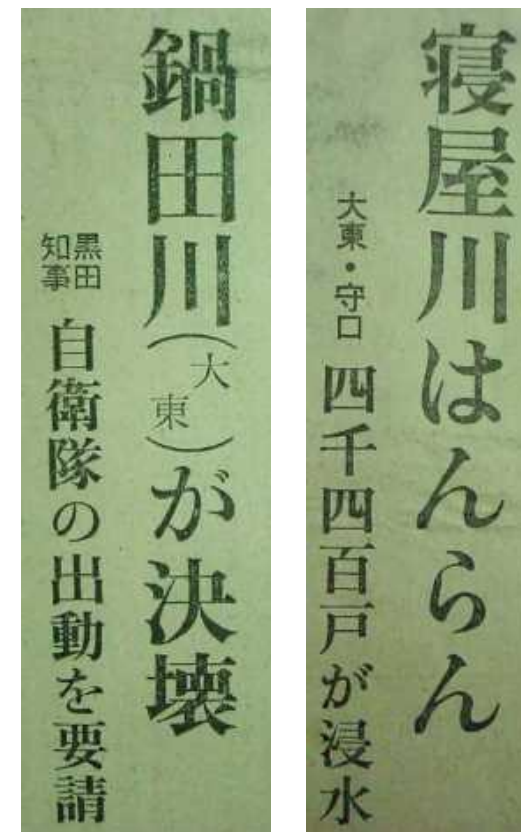 寝屋川はんらん
大東・守口 四千四百戸が浸水
鍋田川(大東)が決壊
黒田知事 自衛隊の出動を要請